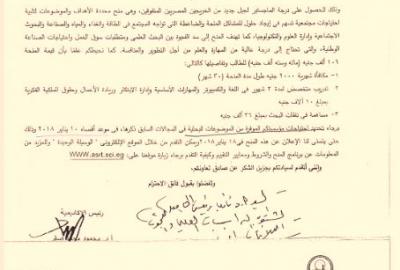 وذلك للحصول على درجة الماجستير لجيل جديد من الخريجين المصريين المتفوقين، وهي منح محددة الأهداف والموضوعات تلبية
احتياجات مجتمعية تسهم في إيجاد حلول للمشاكل الملحة والضاغطة التي تواجه المجتمع في الطاقة والغذاء والمياه والصناعة والبحوث
الاجتماعية وإدارة العلوم والتكنولوجيا، كما تهدف المنح إلى سد الفجوة بين البحث العلمي ومتطلبات سوق العمل واحتياجات الصناعة
الوطنية، التي تحتاج إلى درجة عالية من المهارة والعلم من أجل التطوير والمنافسة. كما نحيطكم علما بأن قيمة المنحة
١٠٦ ألف جنيه (مائة وستة ألف جنيه) للطالب وتفاصيلها كالتالي:
- مكافأة شهرية ٢٠٠٠ جنيه طول مدة المنحة (٣٠ شهر)
٢- تدريب متخصص لمدة ٢ شهرين في اللغة والكمبيوتر والمهارات الأساسية وإدارة الابتكار وريادة الأعمال وحقوق الملكية الفكرية
بمبلغ ١٠ آلاف جنيه
٣- مساهمة في نفقات البحث بمبلغ ٣٦ ألف جنيه
برجاء تحديد احتياجات مؤسستكم الموقرة من الموضوعات البحثية في المجالات السابق ذكرها، في موعد أقصاه ١٠ يناير ٢٠١٨ وذلك
حتى يتسنى لنا الإعلان عن هذه المنح في ١٨ يناير ٢٠١٨ ويكون التقدم من خلال الموقع الإلكتروني "الوسيلة الوحيدة" وللمزيد من
المعلومات عن برنامج المنح والشروط ومعايير التقييم وكيفية التقدم برجاء زيارة موقعنا على: www.asrt.sci.eg
وإنني أتقدم لسيادتكم بجزيل الشكر عن صادق تعاونكم،
وتفضلوا بقبول فائق الاحترام
رئيس الأكاديمية
أ.د. محمود